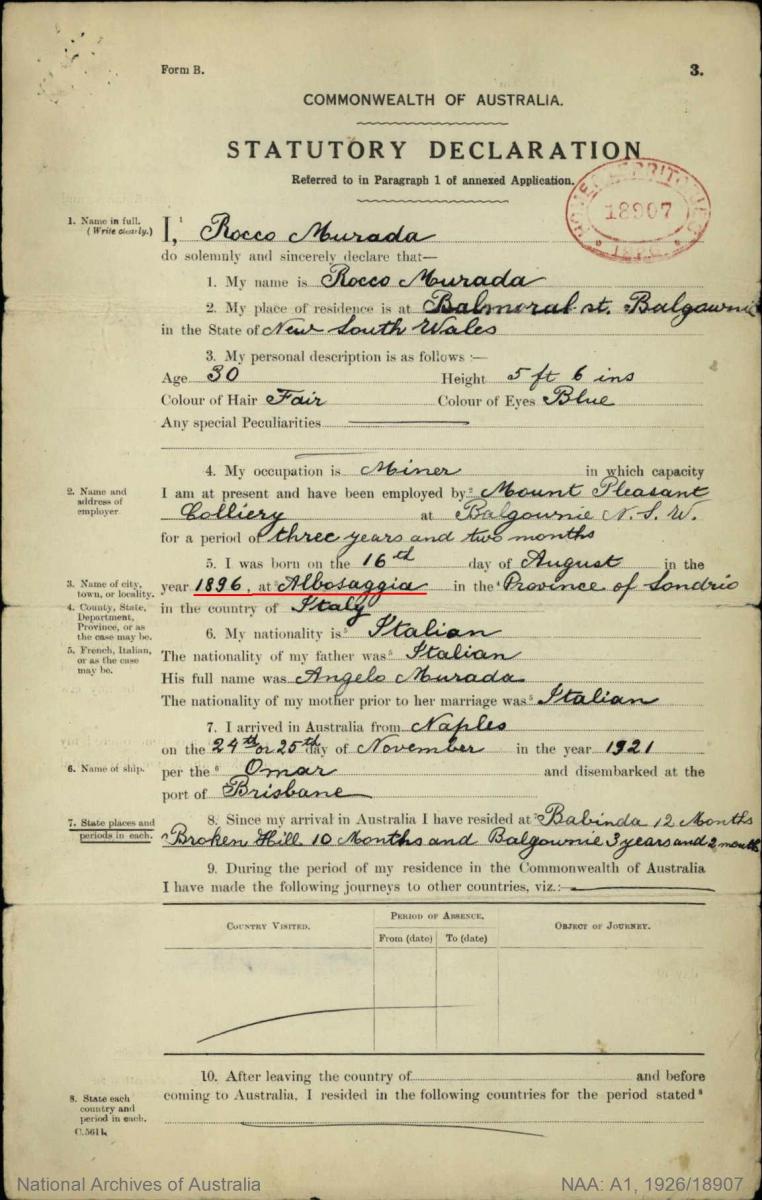 Form B.
3.
COMMONWEALTH OF AUSTRALIA.
STATUTORY DECLARATION
Referred to in Paragraph 1 of annexed Application.
HOME & TERRITORIES
18907
1. Name in full. (Write clearly.)
I,¹ Rocco Murada
do solemnly and sincerely declare that—
1. My name is Rocco Murada
2. My place of residence is at Balmoral st. Balgownie
in the State of New South Wales
3. My personal description is as follows :—
Age 30 Height 5 ft 6 ins
Colour of Hair Fair Colour of Eyes Blue
Any special Peculiarities
4. My occupation is Miner in which capacity
2. Name and address of employer.
I am at present and have been employed by² Mount Pleasant
Colliery at Balgownie N.S.W.
for a period of three years and two months
5. I was born on the 16th day of August in the
3. Name of city, town, or locality.
year 1896, at³ Albosaggia in the⁴ Province of Sondrio
4. County, State, Department, Province, or as the case may be.
in the country of Italy
6. My nationality is⁵ Italian
5. French, Italian, or as the case may be.
The nationality of my father was⁵ Italian
His full name was Angelo Murada
The nationality of my mother prior to her marriage was⁵ Italian
7. I arrived in Australia from Naples
on the 24th or 25th day of November in the year 1921
6. Name of ship.
per the⁶ Omar and disembarked at the
port of Brisbane
7. State places and periods in each.
8. Since my arrival in Australia I have resided at⁷ Babinda 12 Months
Broken Hill 10 Months and Balgownie 3 years and 2 months
9. During the period of my residence in the Commonwealth of Australia
I have made the following journeys to other countries, viz.:—
COUNTRY VISITED.
PERIOD OF ABSENCE.
OBJECT OF JOURNEY.
From (date) To (date)
10. After leaving the country of and before
8. State each country and period in each.
coming to Australia, I resided in the following countries for the period stated⁸
C.5611.
National Archives of Australia
NAA: A1, 1926/18907